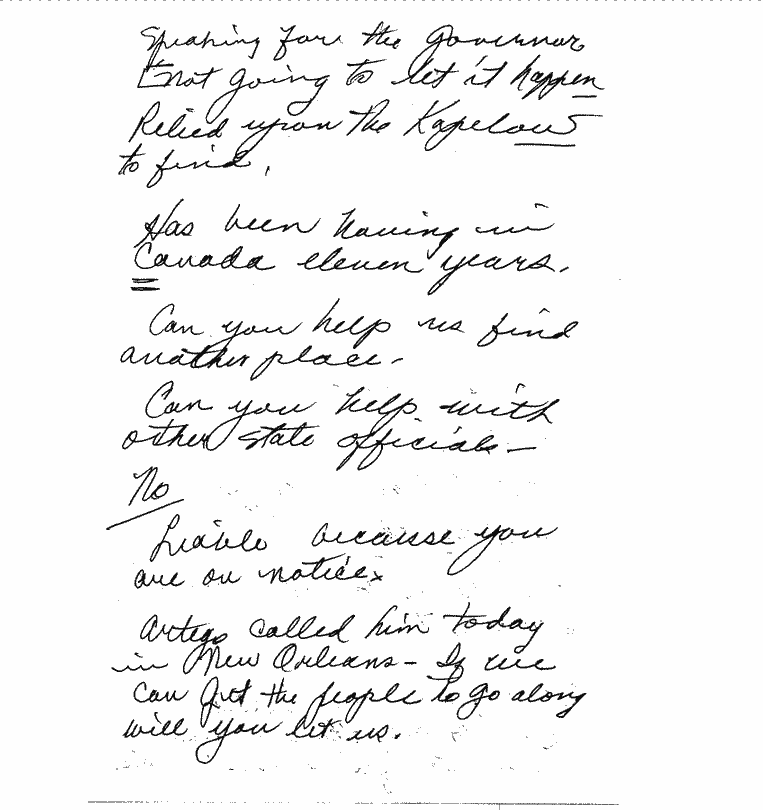 Speaking for the Governor
not going to let it happen
Relied upon the Kapelows
to find.
Has been having in
Canada eleven years.
Can you help us find
another place-
Can you help with
other state officials-
No
Liable because you
are on notice
Artego called him today
in New Orleans- If we
can get the people to go along
will you let us.